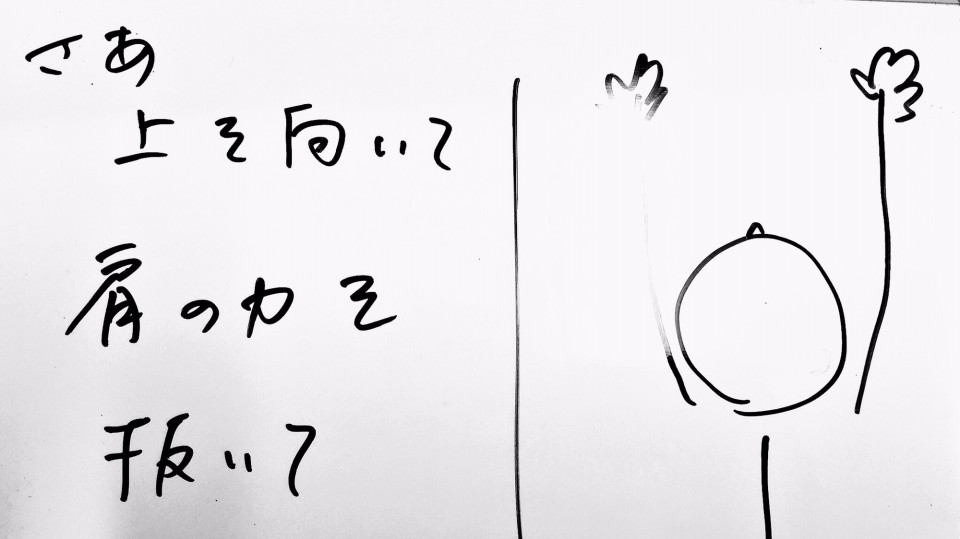 さあ
上を向いて
肩の力を
抜いて